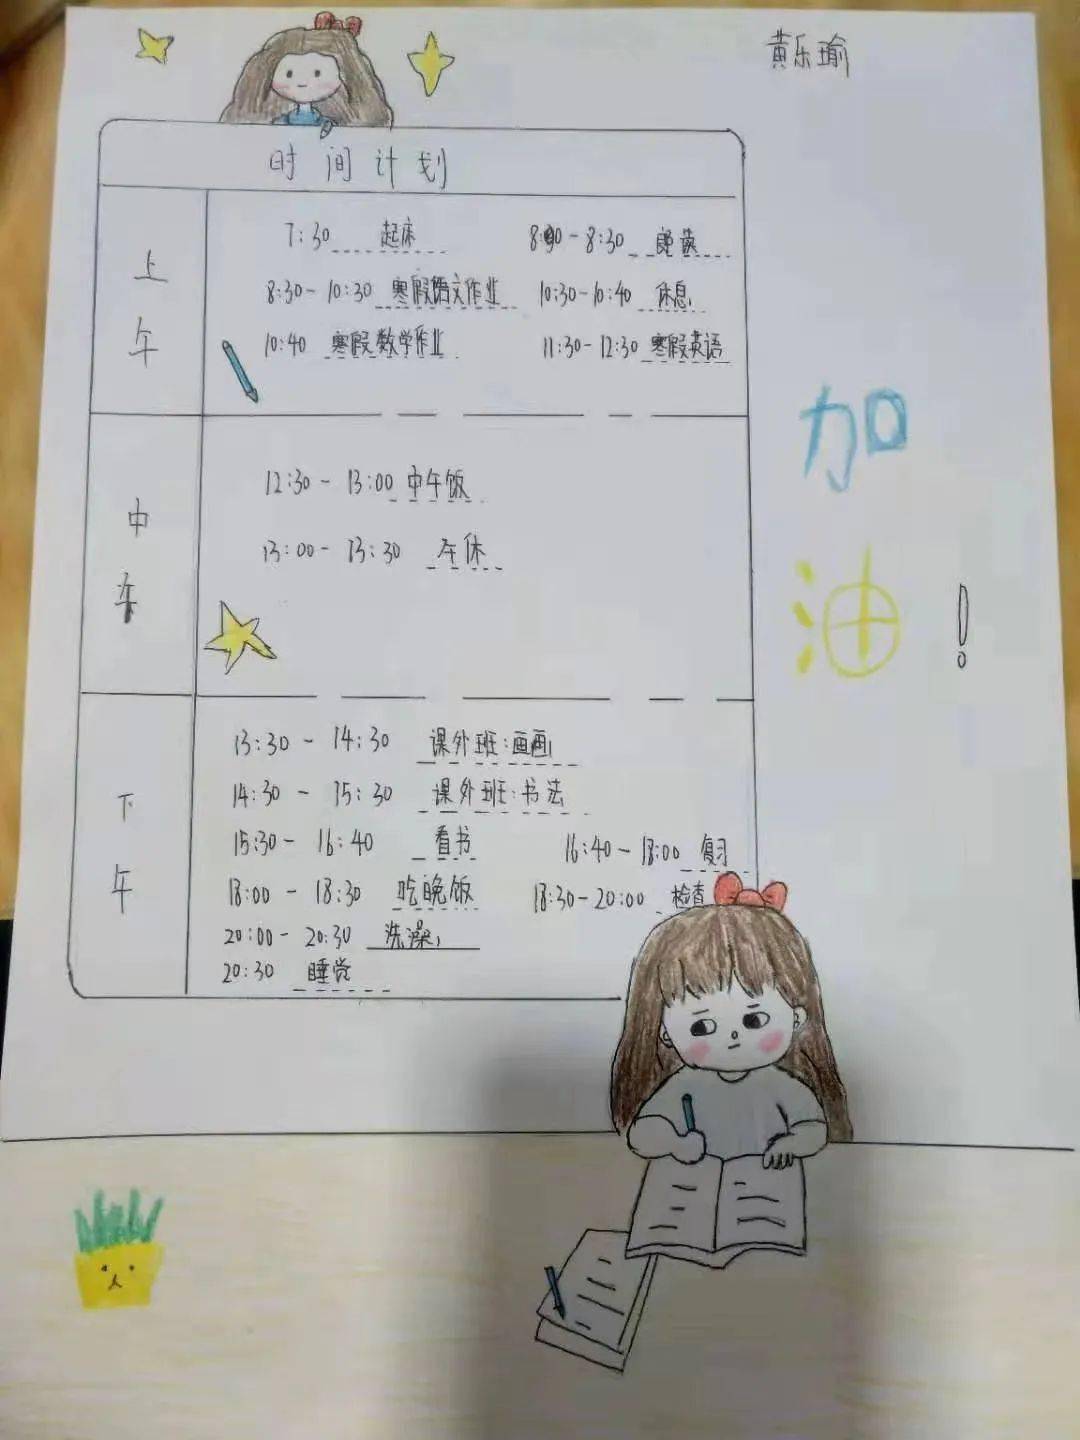 黄乐瑜
时间计划
上午
7:30 起床 8:00-8:30 朗读
8:30-10:30 寒假语文作业 10:30-10:40 休息
10:40 寒假数学作业 11:30-12:30 寒假英语
中午
12:30-13:00 中午饭
13:00-13:30 午休
下午
13:30-14:30 课外班:画画
14:30-15:30 课外班:书法
15:30-16:40 看书 16:40-18:00 复习
18:00-18:30 吃晚饭 18:30-20:00 检查
20:00-20:30 洗澡
20:30 睡觉
加
油!